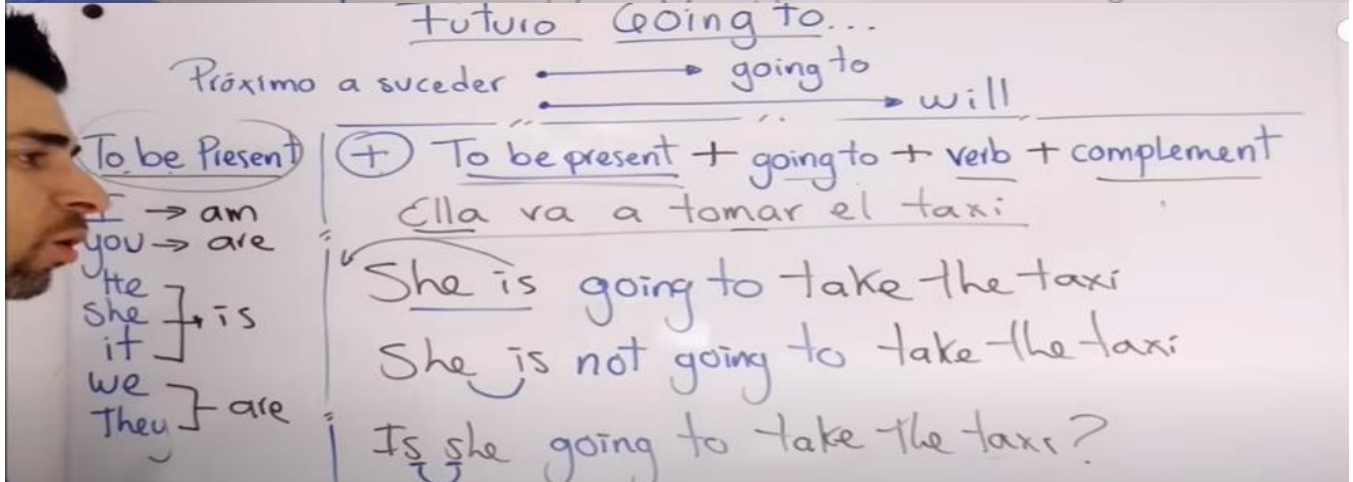 Futuro Going to...
Próximo a suceder → going to
→ will
To be Present
I → am
you → are
He
She
it
→ is
we
They
are
(+) To be present + going to + verb + complement
Ella va a tomar el taxi
She is going to take the taxi
She is not going to take the taxi
Is she going to take the taxi?